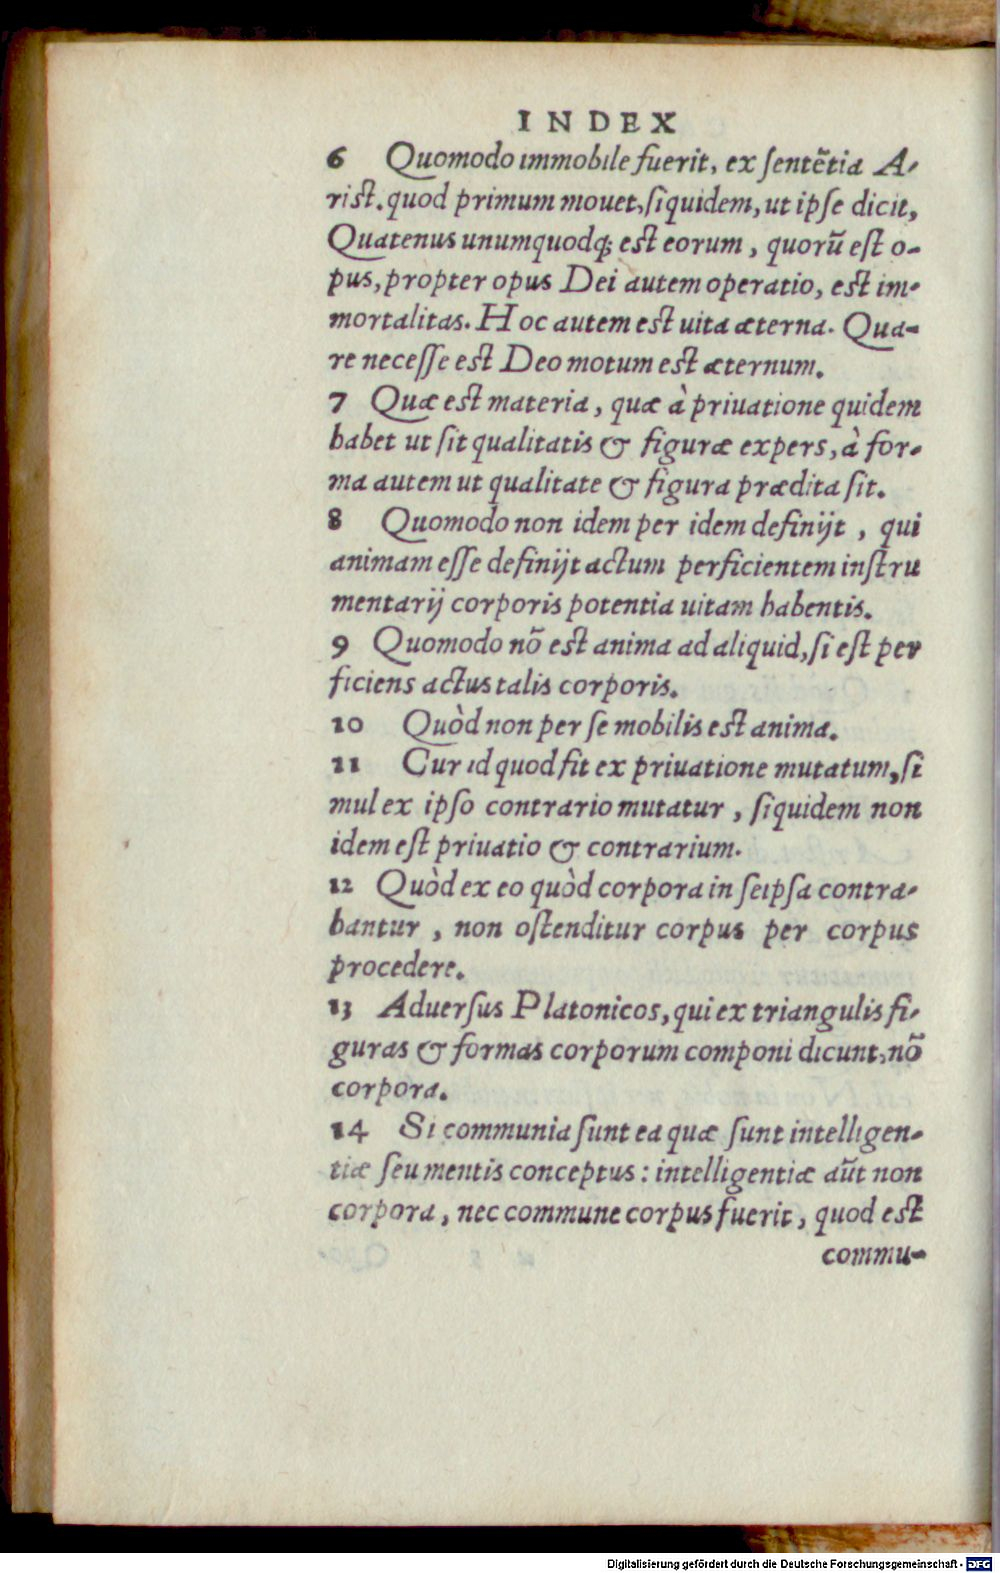 INDEX
6 Quomodo immobile fuerit, ex ſentẽtia A-
riſt. quod primum mouet, ſiquidem, ut ipſe dicit,
Quatenus unumquodq; eſt eorum, quorũ eſt o-
pus, propter opus Dei autem operatio, eſt im-
mortalitas. Hoc autem eſt uita æterna. Qua-
re neceſſe eſt Deo motum eſt æternum.
7 Quæ eſt materia, quæ à priuatione quidem
habet ut ſit qualitatis & figuræ expers, à for-
ma autem ut qualitate & figura prædita ſit.
8 Quomodo non idem per idem definijt, qui
animam eſſe definijt actum perficientem inſtru
mentarij corporis potentia uitam habentis.
9 Quomodo nõ eſt anima ad aliquid, ſi eſt per
ficiens actus talis corporis.
10 Quòd non per ſe mobilis eſt anima.
11 Cur id quod fit ex priuatione mutatum, ſi
mul ex ipſo contrario mutatur, ſiquidem non
idem eſt priuatio & contrarium.
12 Quòd ex eo quòd corpora in ſeipſa contra-
hantur, non oſtenditur corpus per corpus
procedere.
13 Aduerſus Platonicos, qui ex triangulis fi-
guras & formas corporum componi dicunt, nõ
corpora.
14 Si communia ſunt ea quæ ſunt intelligen-
tiæ ſeu mentis conceptus: intelligentiæ aũt non
corpora, nec commune corpus fuerit, quod eſt
commu-
Digitalisierung gefördert durch die Deutsche Forschungsgemeinschaft - DFG